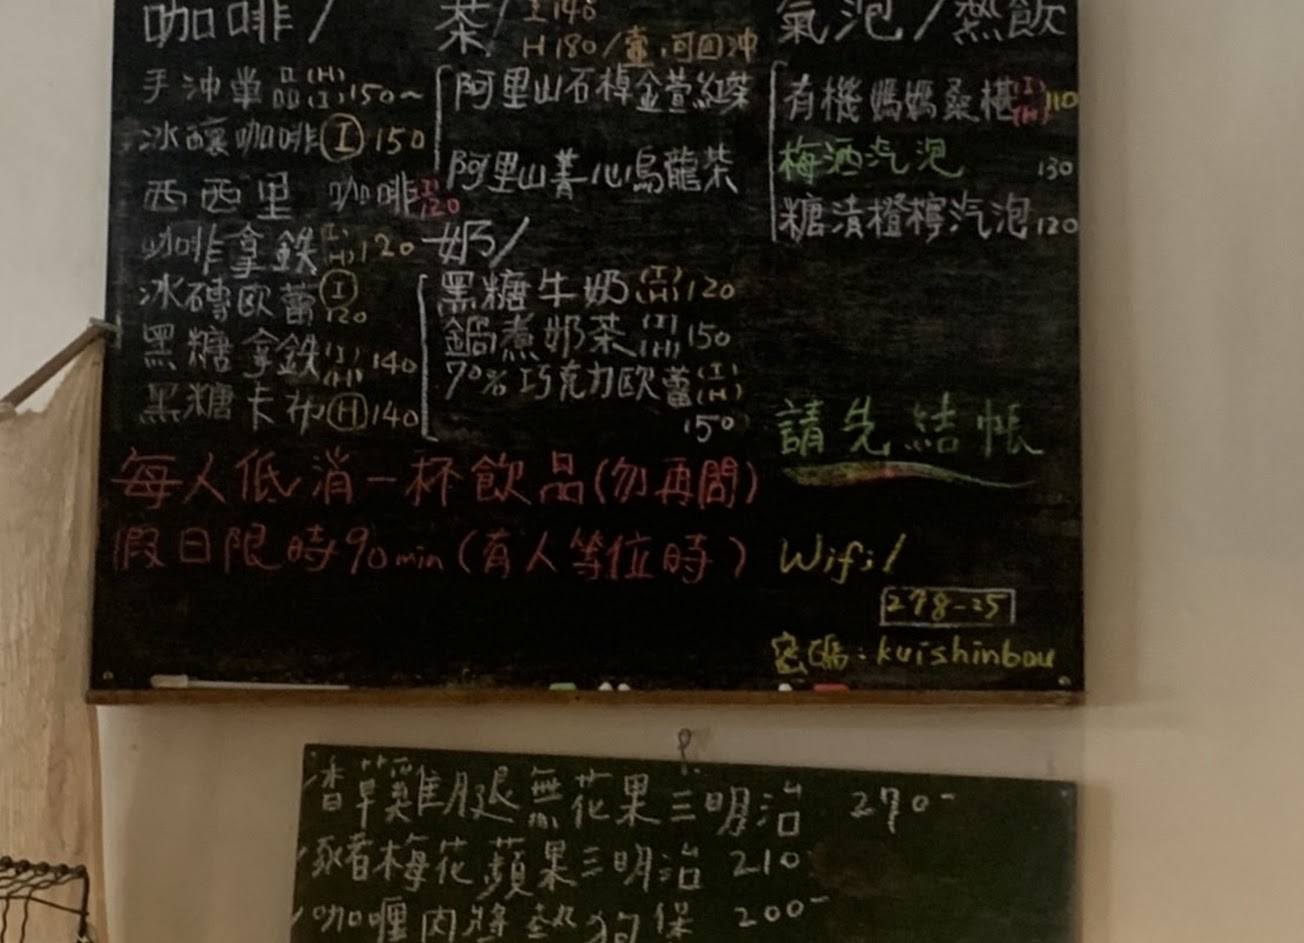 咖啡/
手沖單品(H)(I)150~
冰釀咖啡(I)150
西西里 咖啡(I)120
咖啡拿鐵(I)(H)120
冰磚歐蕾(I)120
黑糖拿鐵(I)(H)140
黑糖卡布(H)140
茶/ I 140
H 180/壺,可回沖
阿里山石棹金萱紅茶
阿里山菁心烏龍茶
奶/
黑糖牛奶(I)(H)120
鍋煮奶茶(I)(H)150
70%巧克力歐蕾(I)(H)
150
氣泡/熱飲
有機媽媽桑椹(I)(H)110
梅酒汽泡 130
糖漬橙檸汽泡120
請先結帳
每人低消一杯飲品(勿再問)
假日限時90min(有人等位時)
Wifi/
278-25
密碼:kuishinbou
香草雞腿無花果三明治 270-
豬梅花蘋果三明治 210
咖喱肉醬熱狗堡 200-